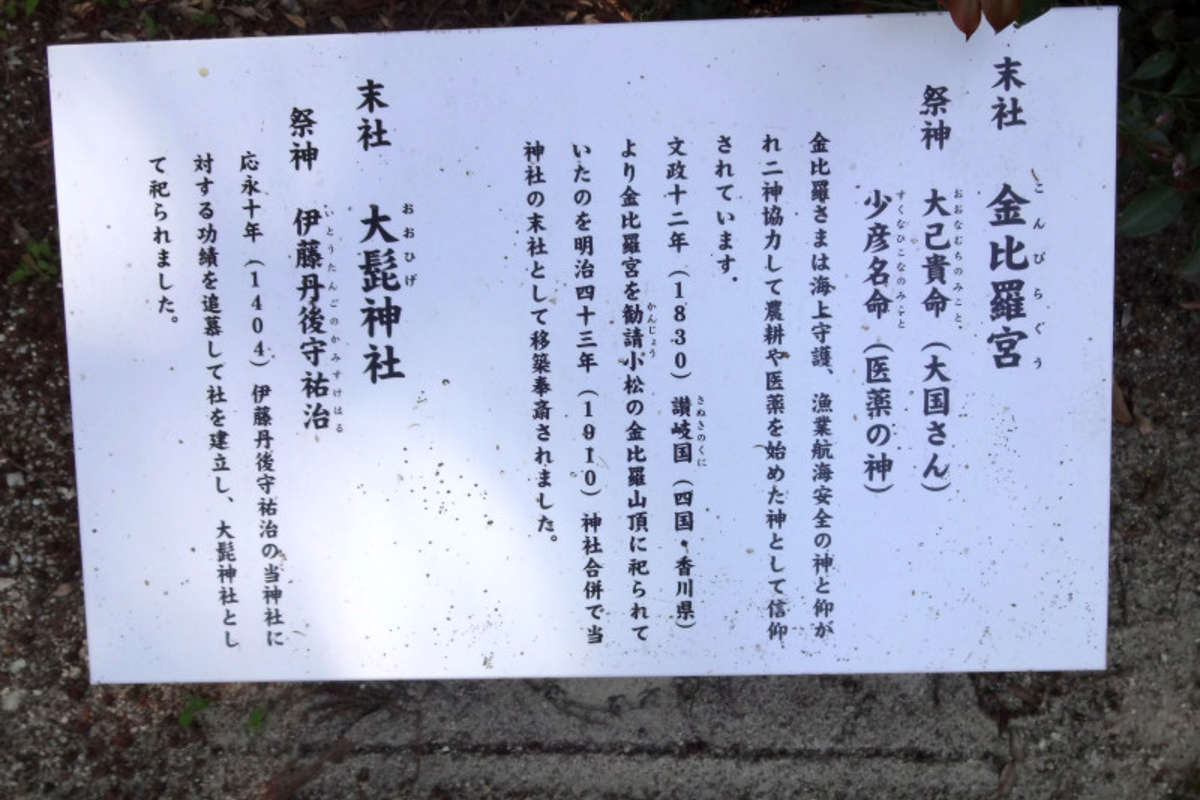 末社 金比羅宮
こんぴらぐう
祭神 大己貴命(大国さん)
おおなむちのみこと、
少彦名命(医薬の神)
すくなひこなのみこと
金比羅さまは海上守護、漁業航海安全の神と仰が
れ二神協力して農耕や医薬を始めた神として信仰
されています.
文政十二年(1830)讃岐国(四国・香川県)
さぬきのくに
より金比羅宮を勧請小松の金比羅山頂に祀られて
かんじょう
いたのを明治四十三年(1910)神社合併で当
神社の末社として移築奉斎されました。
末社 大髭神社
おおひげ
祭神 伊藤丹後守祐治
いとうたんごのかみすけはる
応永十年(1404)伊藤丹後守祐治の当神社に
対する功績を追慕して社を建立し、大髭神社とし
て祀られました。